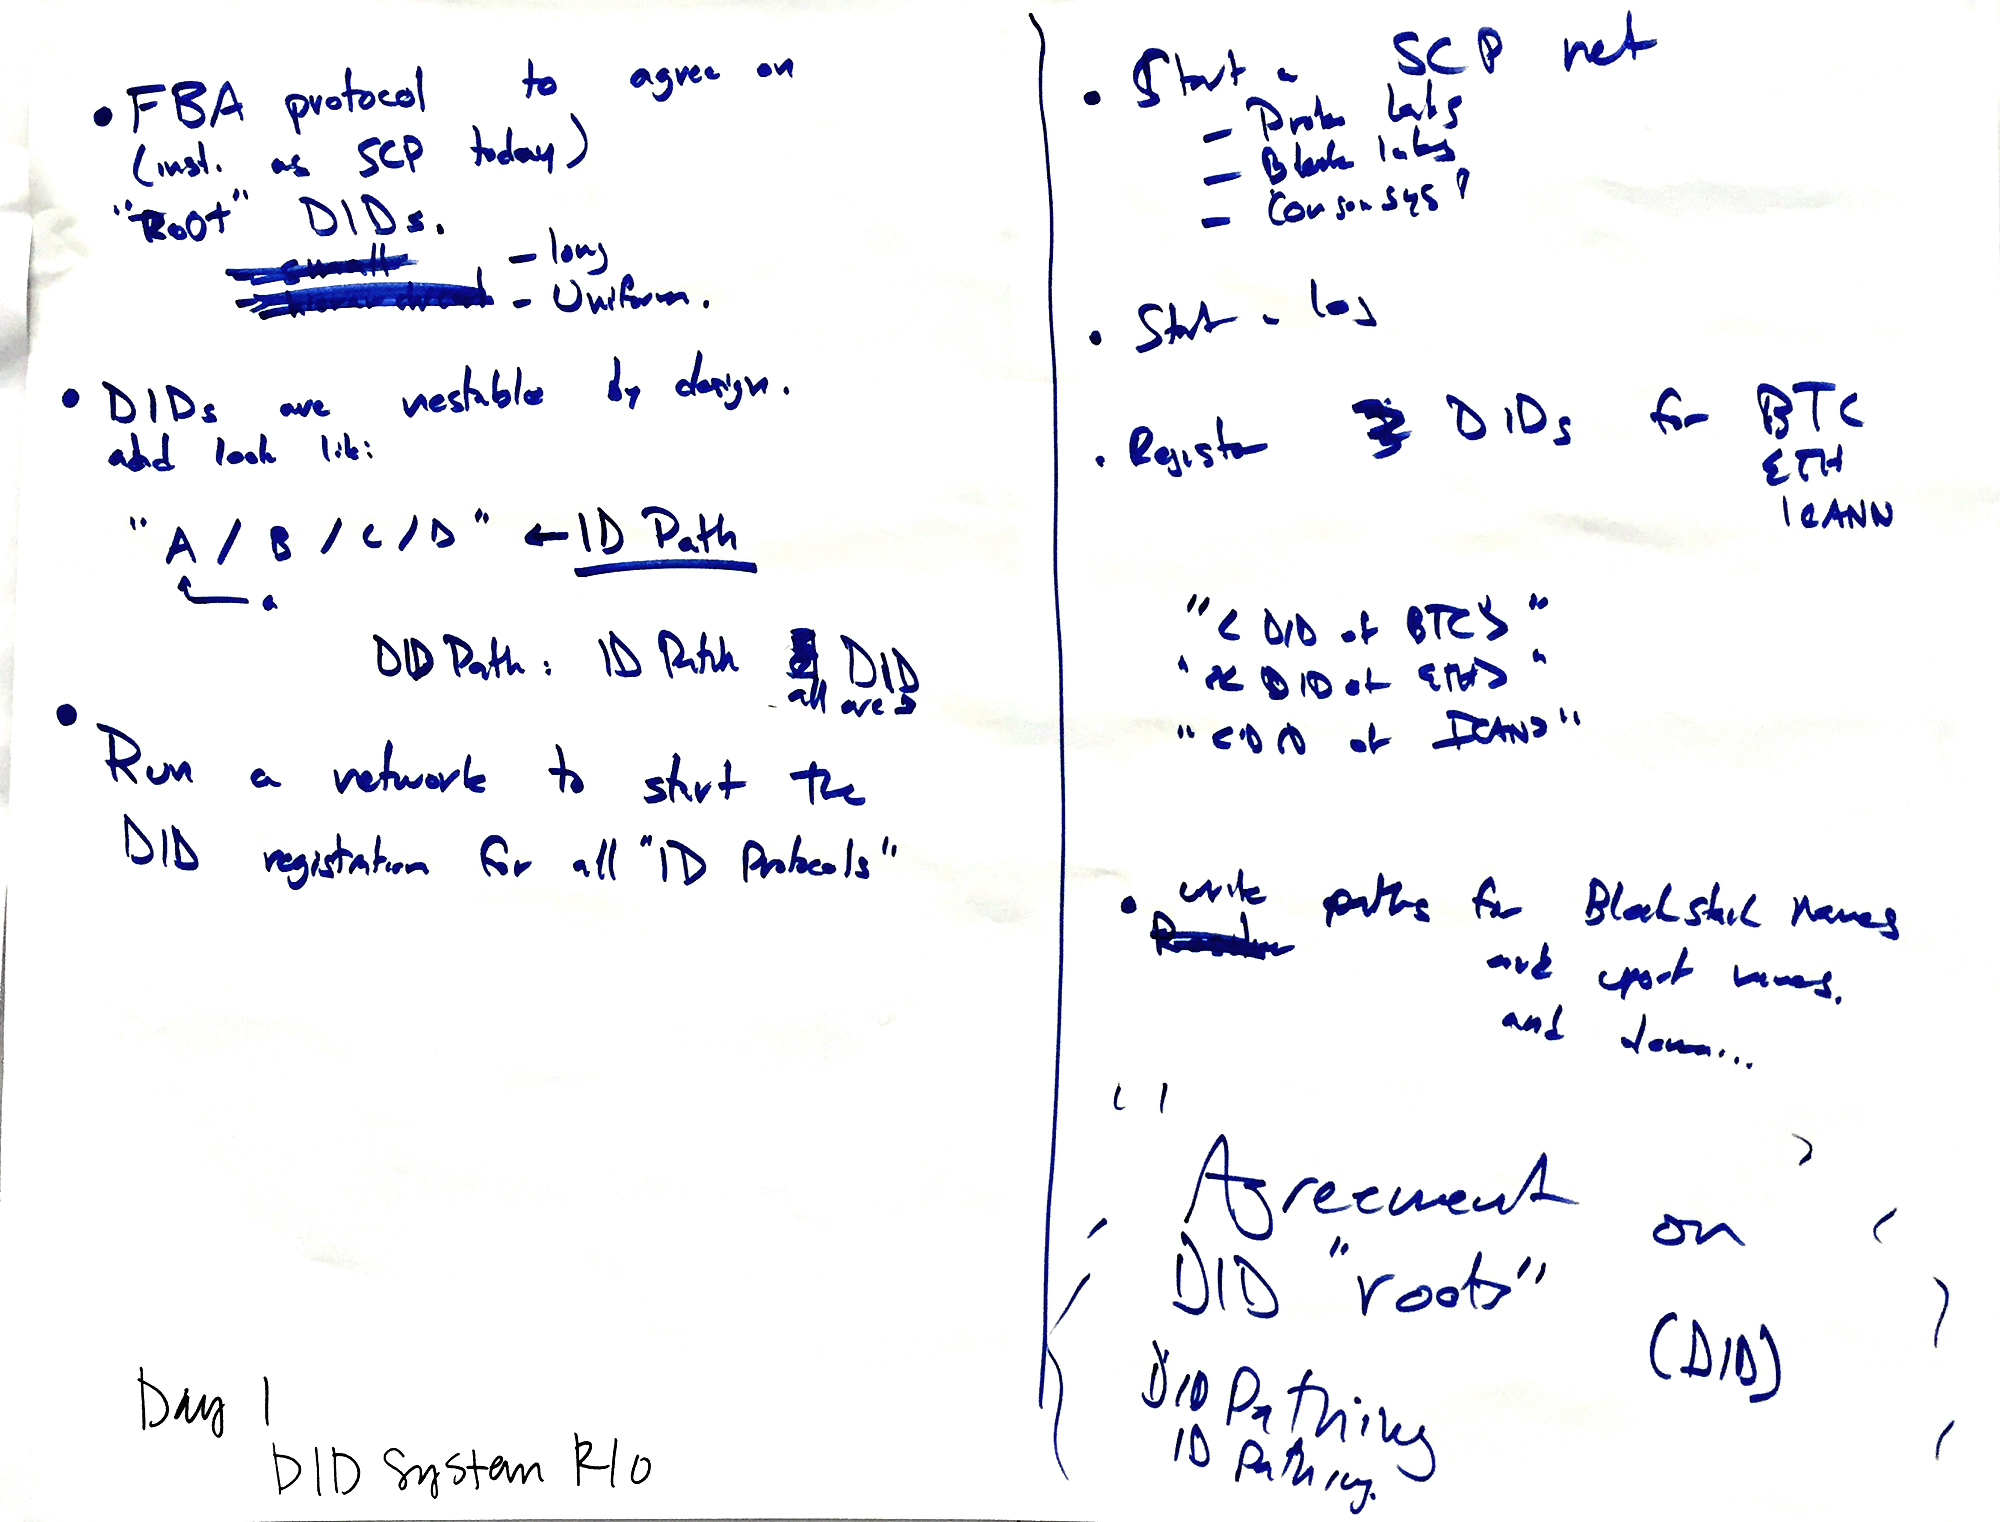 • FBA protocol to agree on
(inst. as SCP today)
"Root" DIDs.
- small - long
- hierarchical - Uniform.
• DIDs are nestable by design.
and look like:
"A / B / C / D" ← ID Path
a
DID Path: ID Path DID
all are
• Run a network to start the
DID registration for all "ID Protocols"
Day 1
DID System R/O
• Start a SCP net
- Proto Labs
- Block labs
- Consensys?
• Start a log
• Register DIDs for BTC
ETH
ICANN
"< DID of BTC>"
"< DID of ETH>"
"<DID of ICANN>"
• write paths for Blockstack names
and uport names.
and
Agreement on
DID "roots"
(DID)
DID Pathing
ID Pathing.